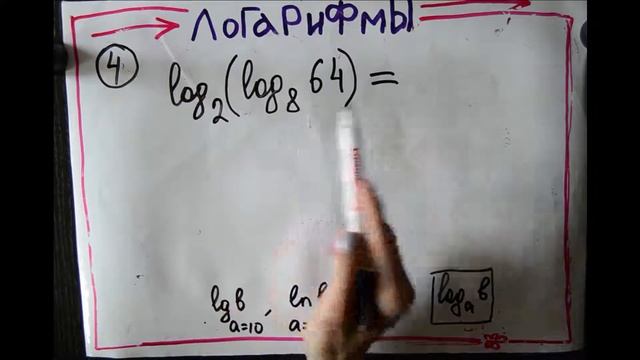 ЛОГАРИФМЫ
④ log₂(log₈ 64) =
lg b, ln
a=10 a=
logₐ b